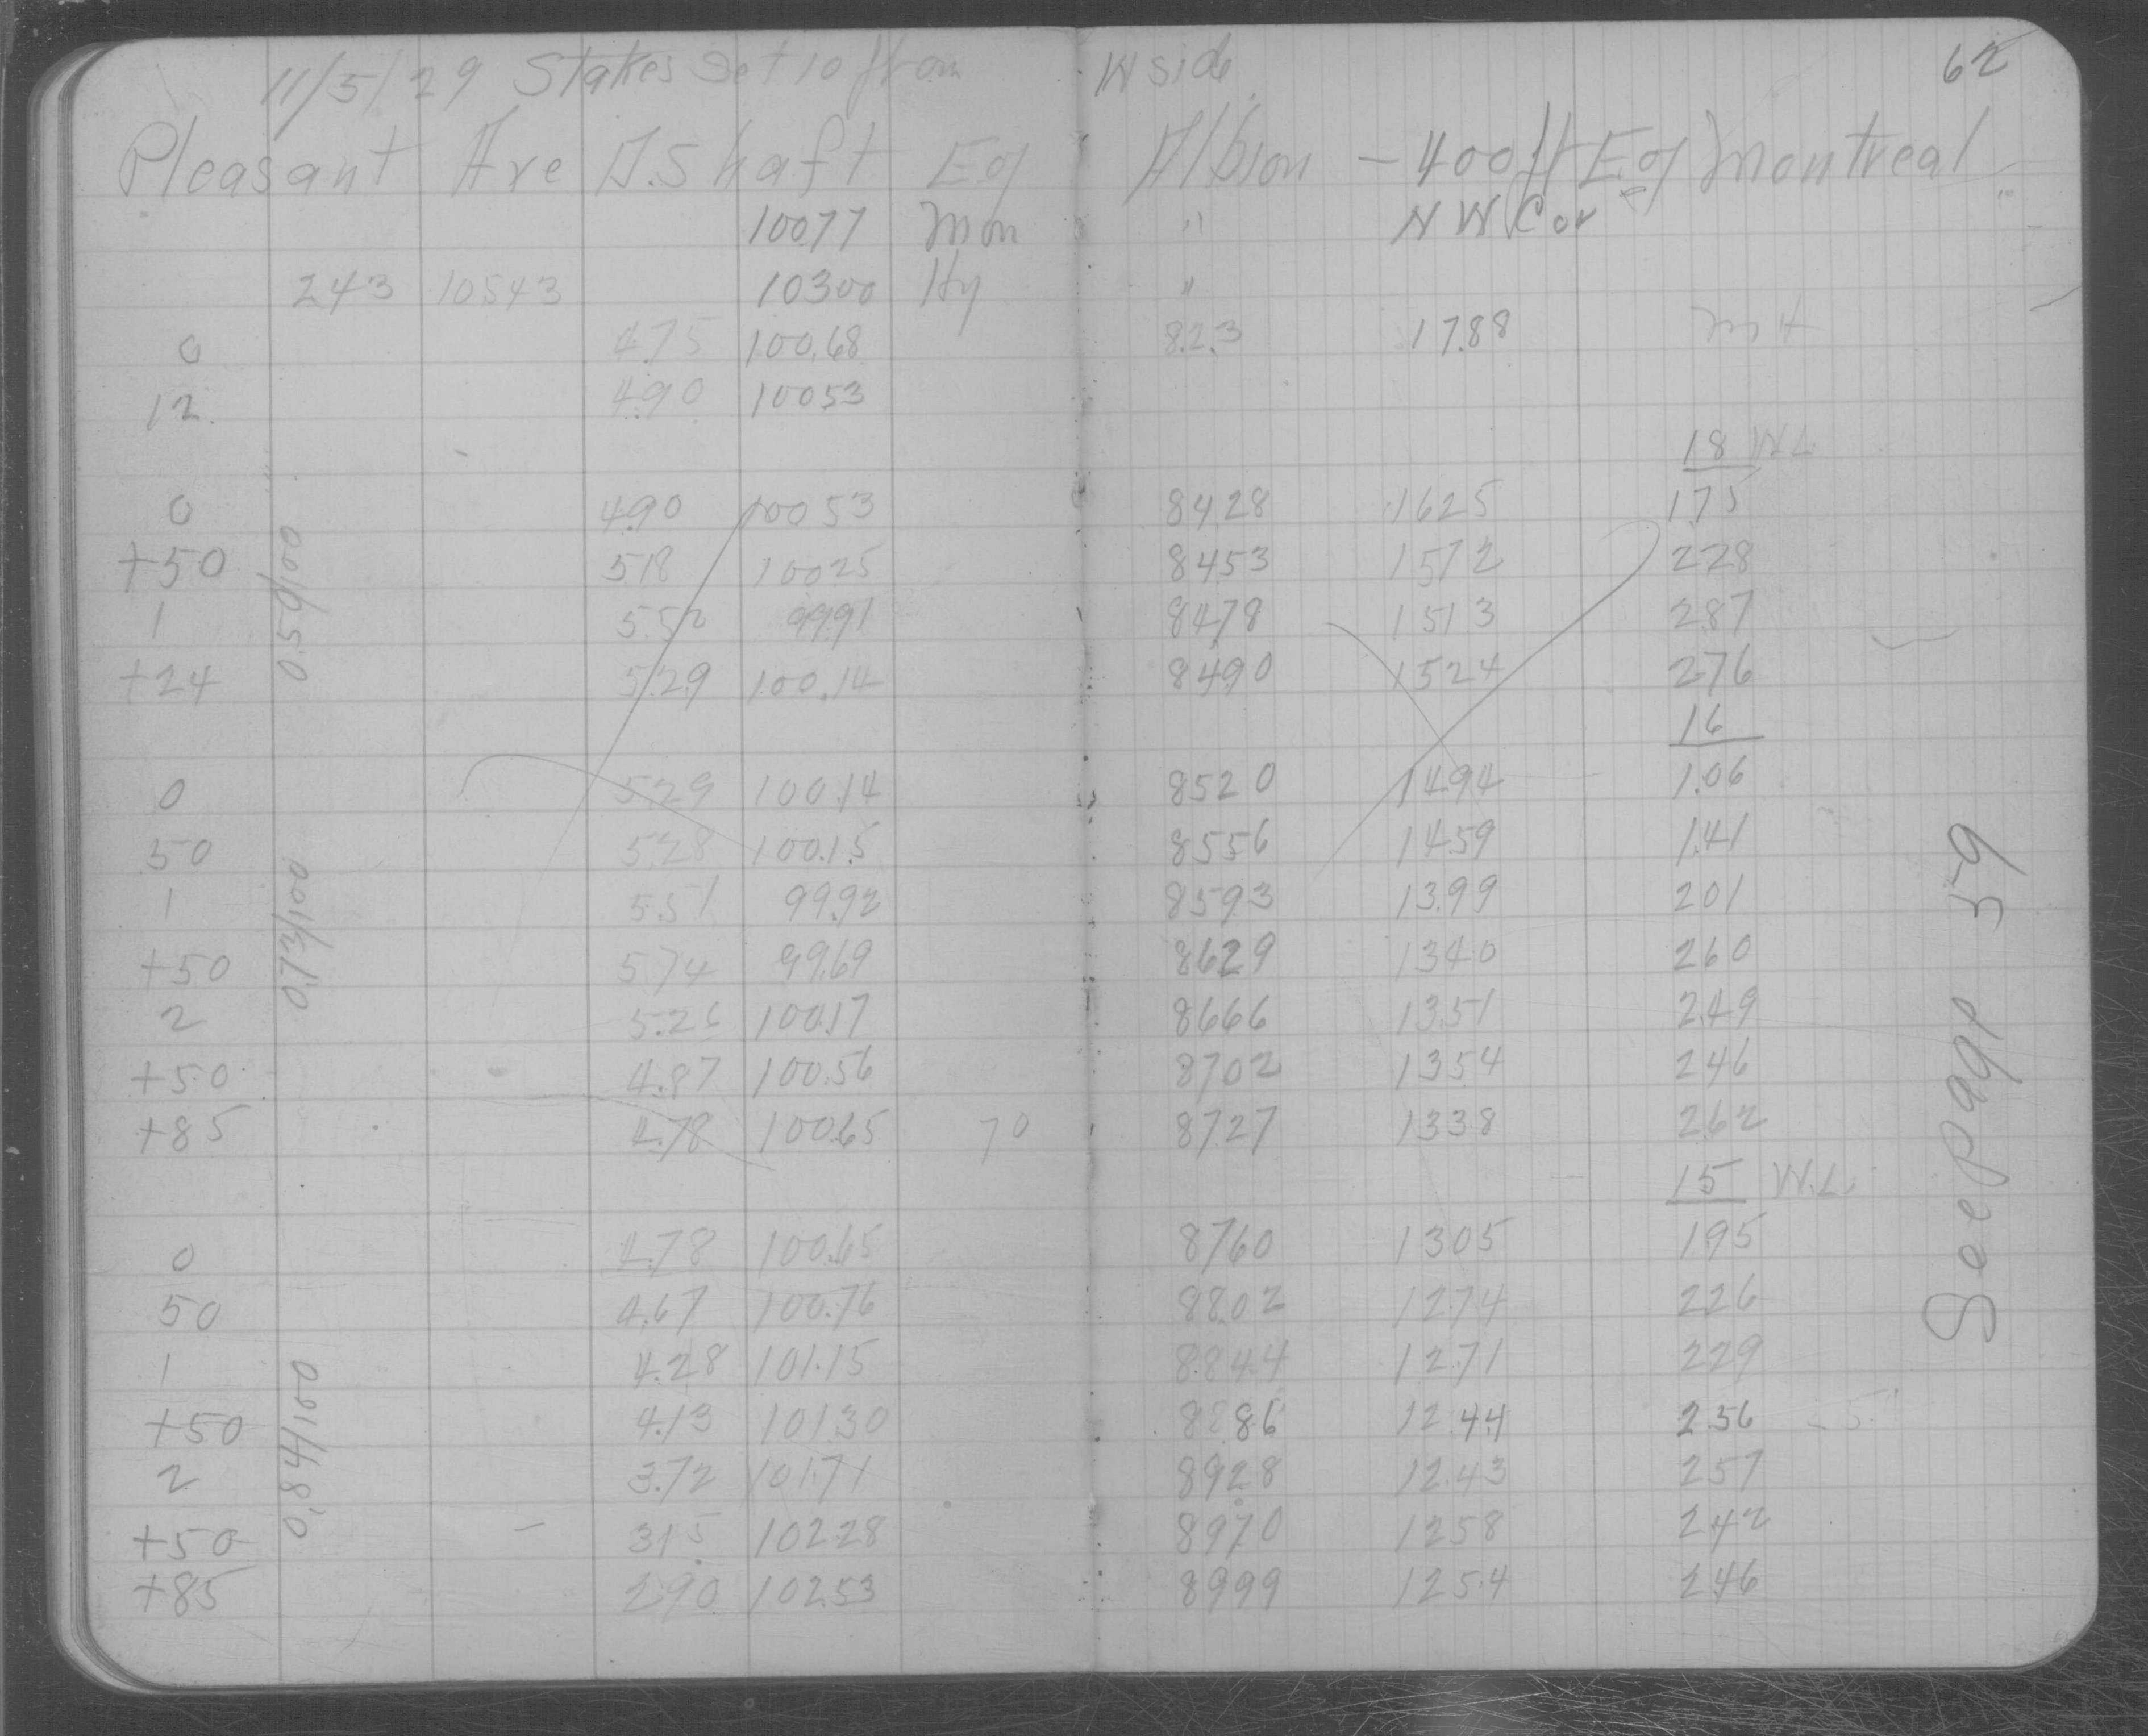 62
11/5/29 Stakes Set 10 from W side
Pleasant Ave D.Shaft E of Albion - 400 ft E of Montreal
10077 Mon " N W Cor
243 10543 10300 Hy "
0 4.75 100.68 82.3 17.88 Mt
12 4.90 10053
18 W.L.
0 490 10053 8428 1625 175
+50 518 10025 8453 1572 228
1 5.52 99.91 8478 1513 287
+24 5.29 100.14 8490 1524 276
0.50/100
16
0 5.29 100.14 8520 1494 1.06
50 5.28 100.15 8556 1459 1.41
1 5.51 99.92 8593 1399 201
+50 5.74 99.69 8629 1340 260
2 5.26 100.17 8666 1351 249
+50 4.87 100.56 8702 1354 246
+85 4.78 100.65 70 8727 1338 262
0.73/100
15 W.L.
0 4.78 100.65 8760 1305 195
50 4.67 100.76 8802 1274 226
1 4.28 101.15 8844 1271 229
+50 4.13 101.30 8886 1244 256 - 5
2 3.72 101.71 8928 1243 257
+50 315 102.28 8970 1258 242
+85 2.90 102.53 8999 1254 246
0.84/100
See Page 59